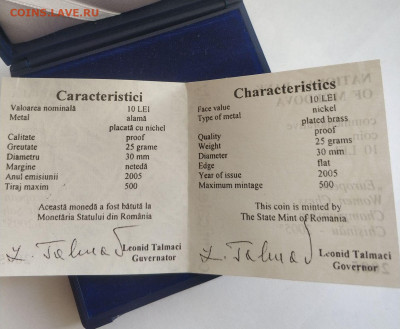 COINS.LAVE.RU
Caracteristici
Valoarea nominală 10 LEI
Metal alamă
placată cu nichel
Calitate proof
Greutate 25 grame
Diametru 30 mm
Margine netedă
Anul emisiunii 2005
Tiraj maxim 500
Această monedă a fost bătută la
Monetăria Statului din România
L. Talmaci
Leonid Talmaci
Guvernator
Characteristics
Face value 10 LEI
Type of metal nickel
plated brass
Quality proof
Weight 25 grams
Diameter 30 mm
Edge flat
Year of issue 2005
Maximum mintage 500
This coin is minted by
The State Mint of Romania
L. Talmaci
Leonid Talmaci
Governor